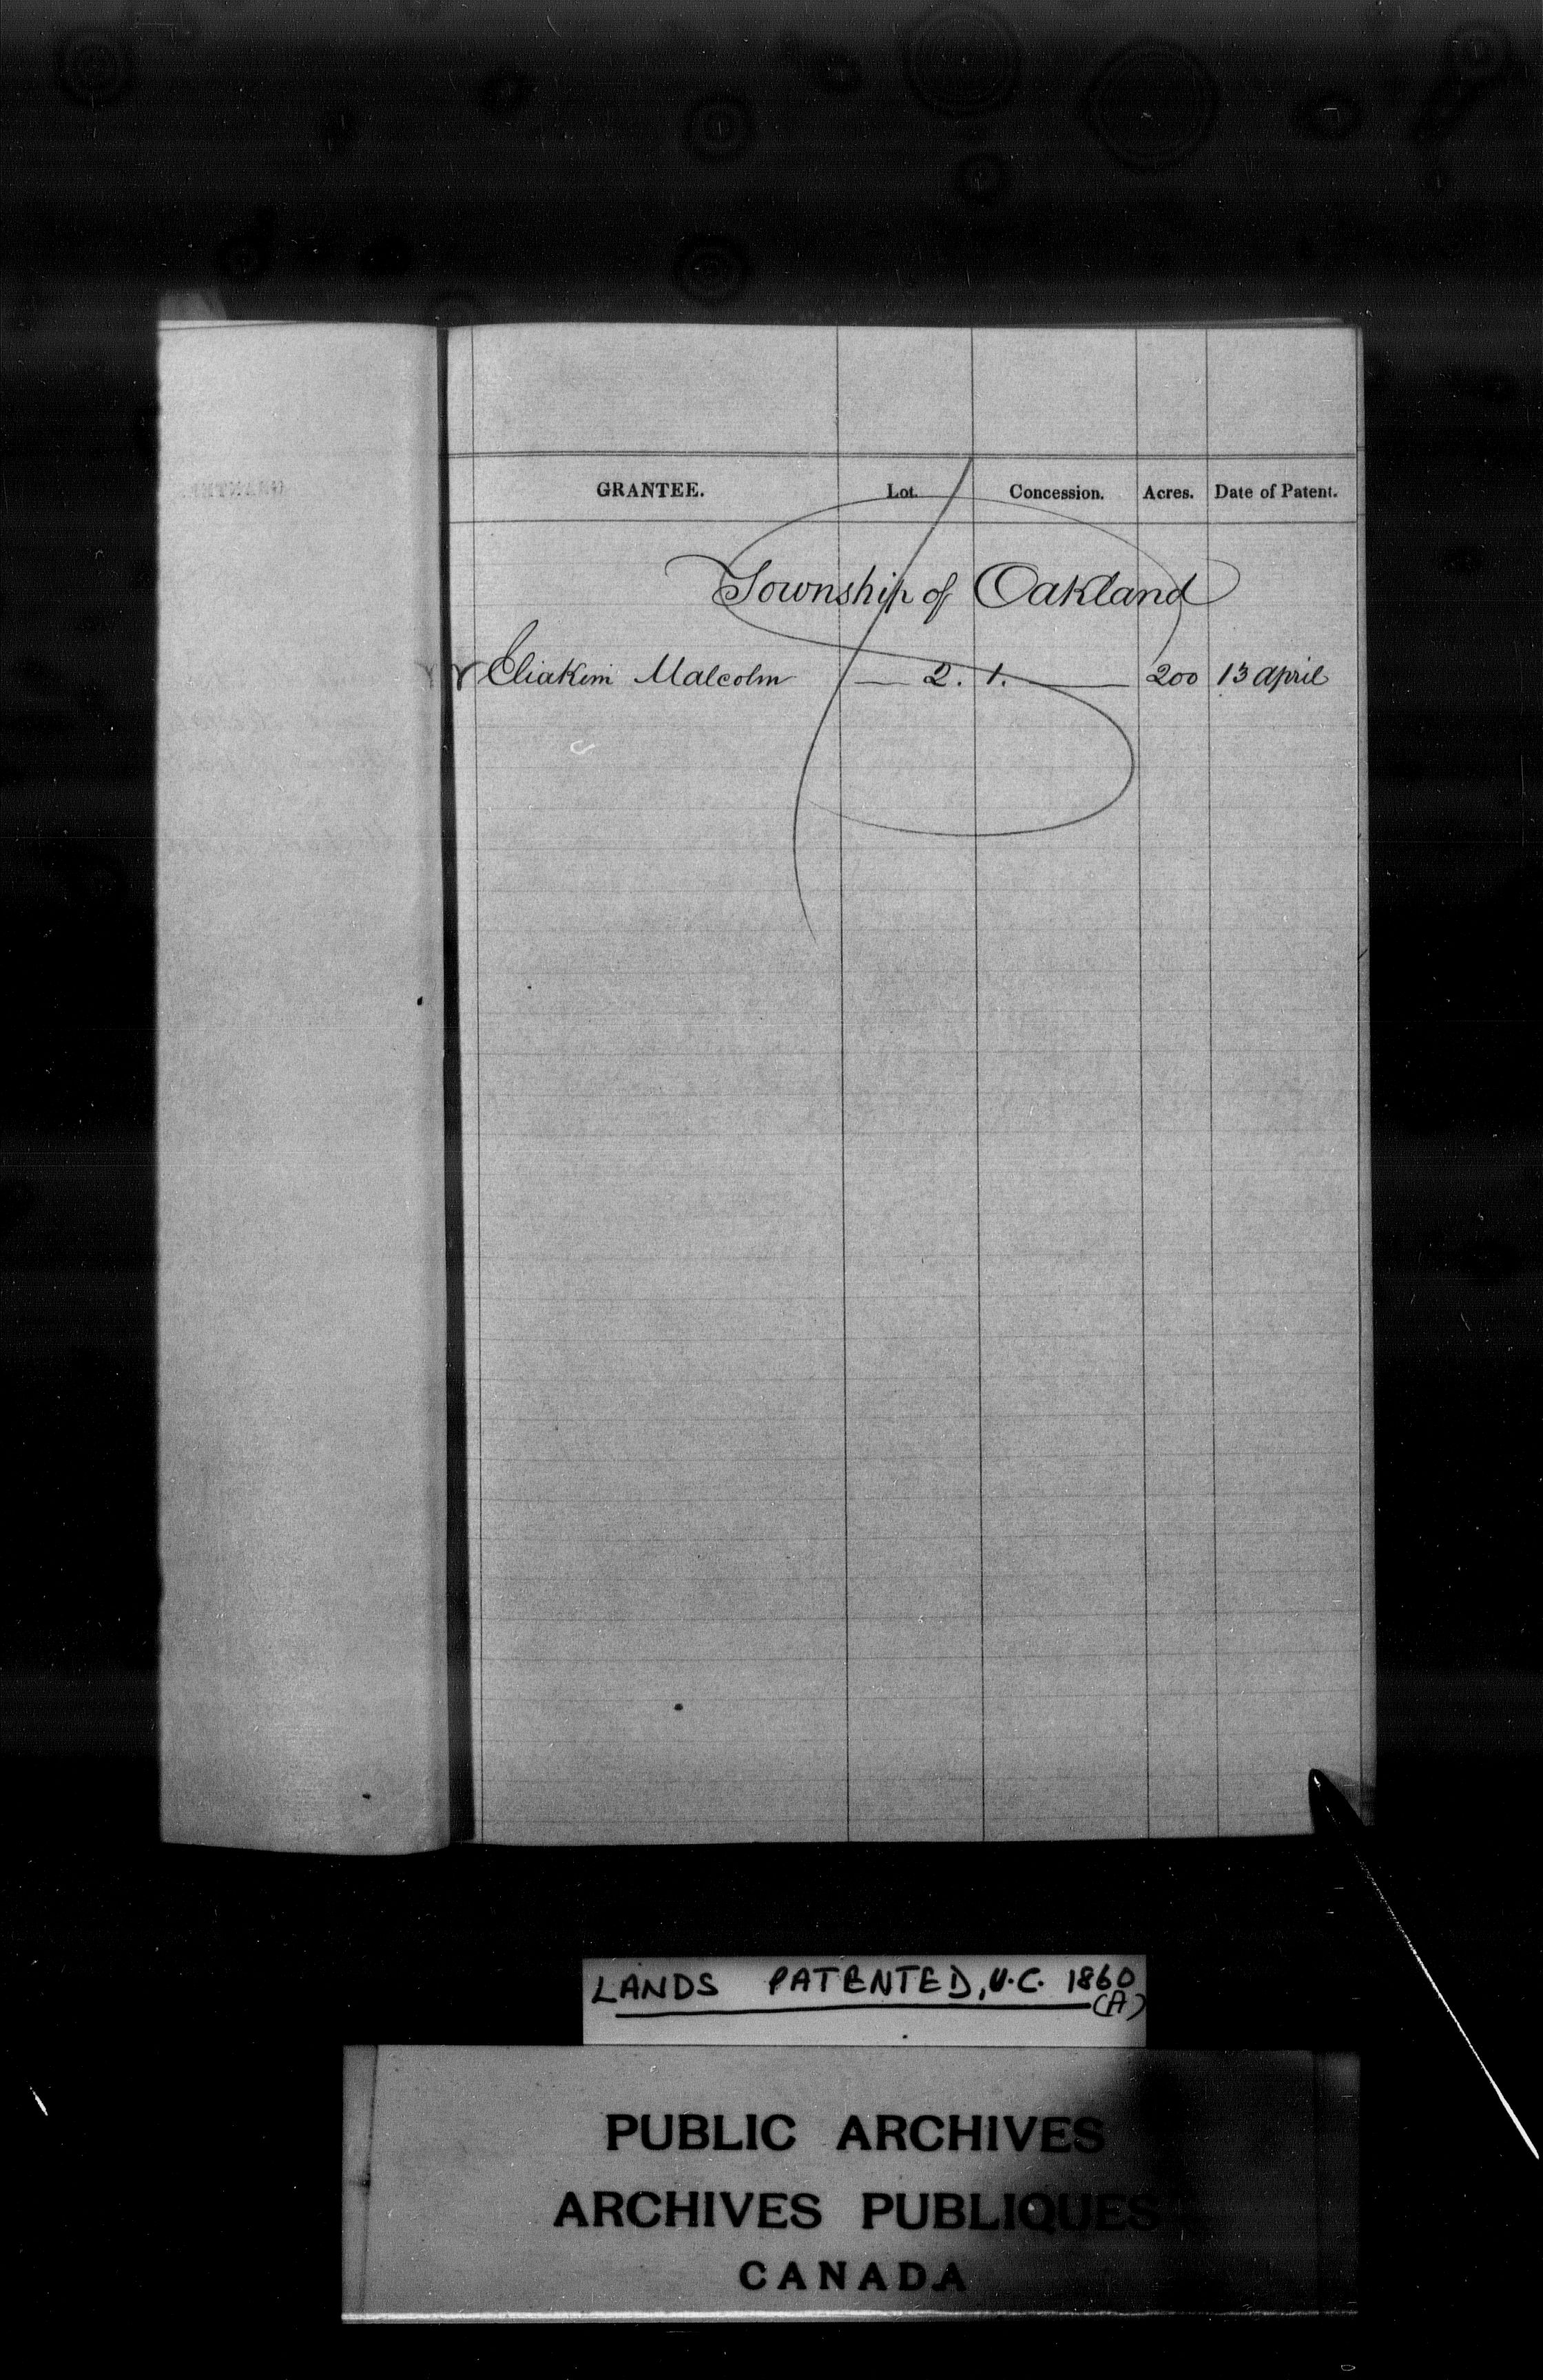 GRANTEE. Lot. Concession. Acres. Date of Patent.
Township of Oakland
Eliakim Malcolm — 2. 1. — 200 13 april
LANDS PATENTED, U.C. 1860
(A)
PUBLIC ARCHIVES
ARCHIVES PUBLIQUES
CANADA